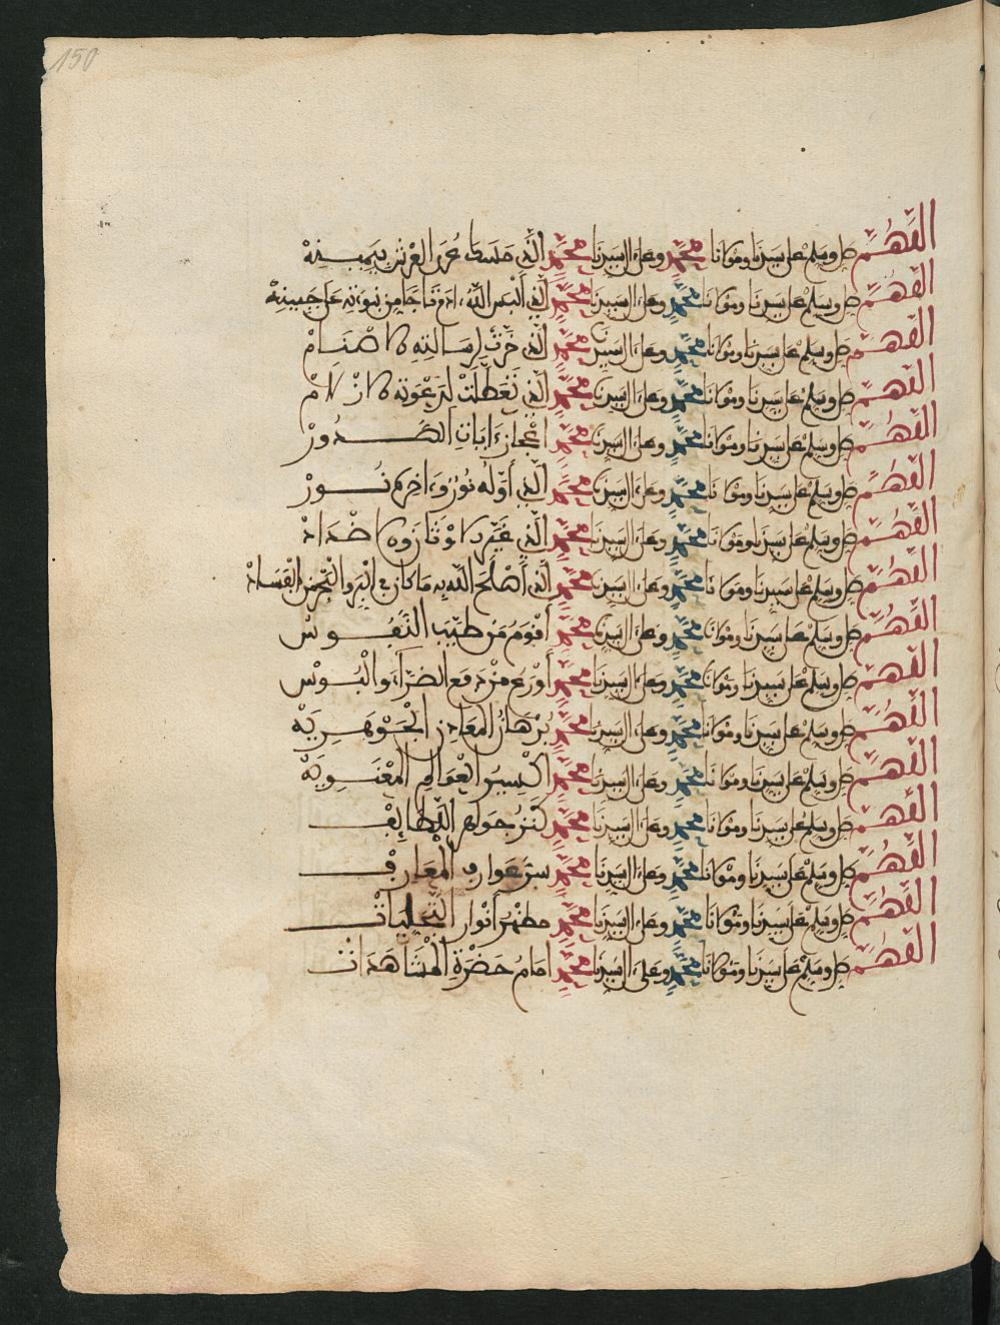 150
اللهم صل وسلم على سيدنا ومولانا محمد وعلى ال سيدنا محمد الذي جلس على العرش بيمينه
اللهم صل وسلم على سيدنا ومولانا محمد وعلى ال سيدنا محمد الذي ألبس الله ءادم تاجا من نبوءته على جبينه
اللهم صل وسلم على سيدنا ومولانا محمد وعلى ال سيدنا محمد الذي خرت لرسالته الاصنام
اللهم صل وسلم على سيدنا ومولانا محمد وعلى ال سيدنا محمد الذي تعطلت لدعوته الازلام
اللهم صل وسلم على سيدنا ومولانا محمد وعلى ال سيدنا محمد اعجاز ءايات الصدور
اللهم صل وسلم على سيدنا ومولانا محمد وعلى ال سيدنا محمد الذي أوله نور وءاخره نور
اللهم صل وسلم على سيدنا ومولانا محمد وعلى ال سيدنا محمد الذي الاوتار والاضداد
اللهم صل وسلم على سيدنا ومولانا محمد وعلى ال سيدنا محمد الذي أصلح الله به ما كان في البر والبحر من الفساد
اللهم صل وسلم على سيدنا ومولانا محمد وعلى ال سيدنا محمد أقوم من طبب النفوس
اللهم صل وسلم على سيدنا ومولانا محمد وعلى ال سيدنا محمد أورع من دفع الضراء والبوس
اللهم صل وسلم على سيدنا ومولانا محمد وعلى ال سيدنا محمد برهان المعادن الجوهرية
اللهم صل وسلم على سيدنا ومولانا محمد وعلى ال سيدنا محمد اكسير العوالم المعنوية
اللهم صل وسلم على سيدنا ومولانا محمد وعلى ال سيدنا محمد كنز جواهر اللطايف
اللهم صل وسلم على سيدنا ومولانا محمد وعلى ال سيدنا محمد سر عوارف المعارف
اللهم صل وسلم على سيدنا ومولانا محمد وعلى ال سيدنا محمد مظهر أنوار التجليات
اللهم صل وسلم على سيدنا ومولانا محمد وعلى ال سيدنا محمد امام حضرة المشاهدات